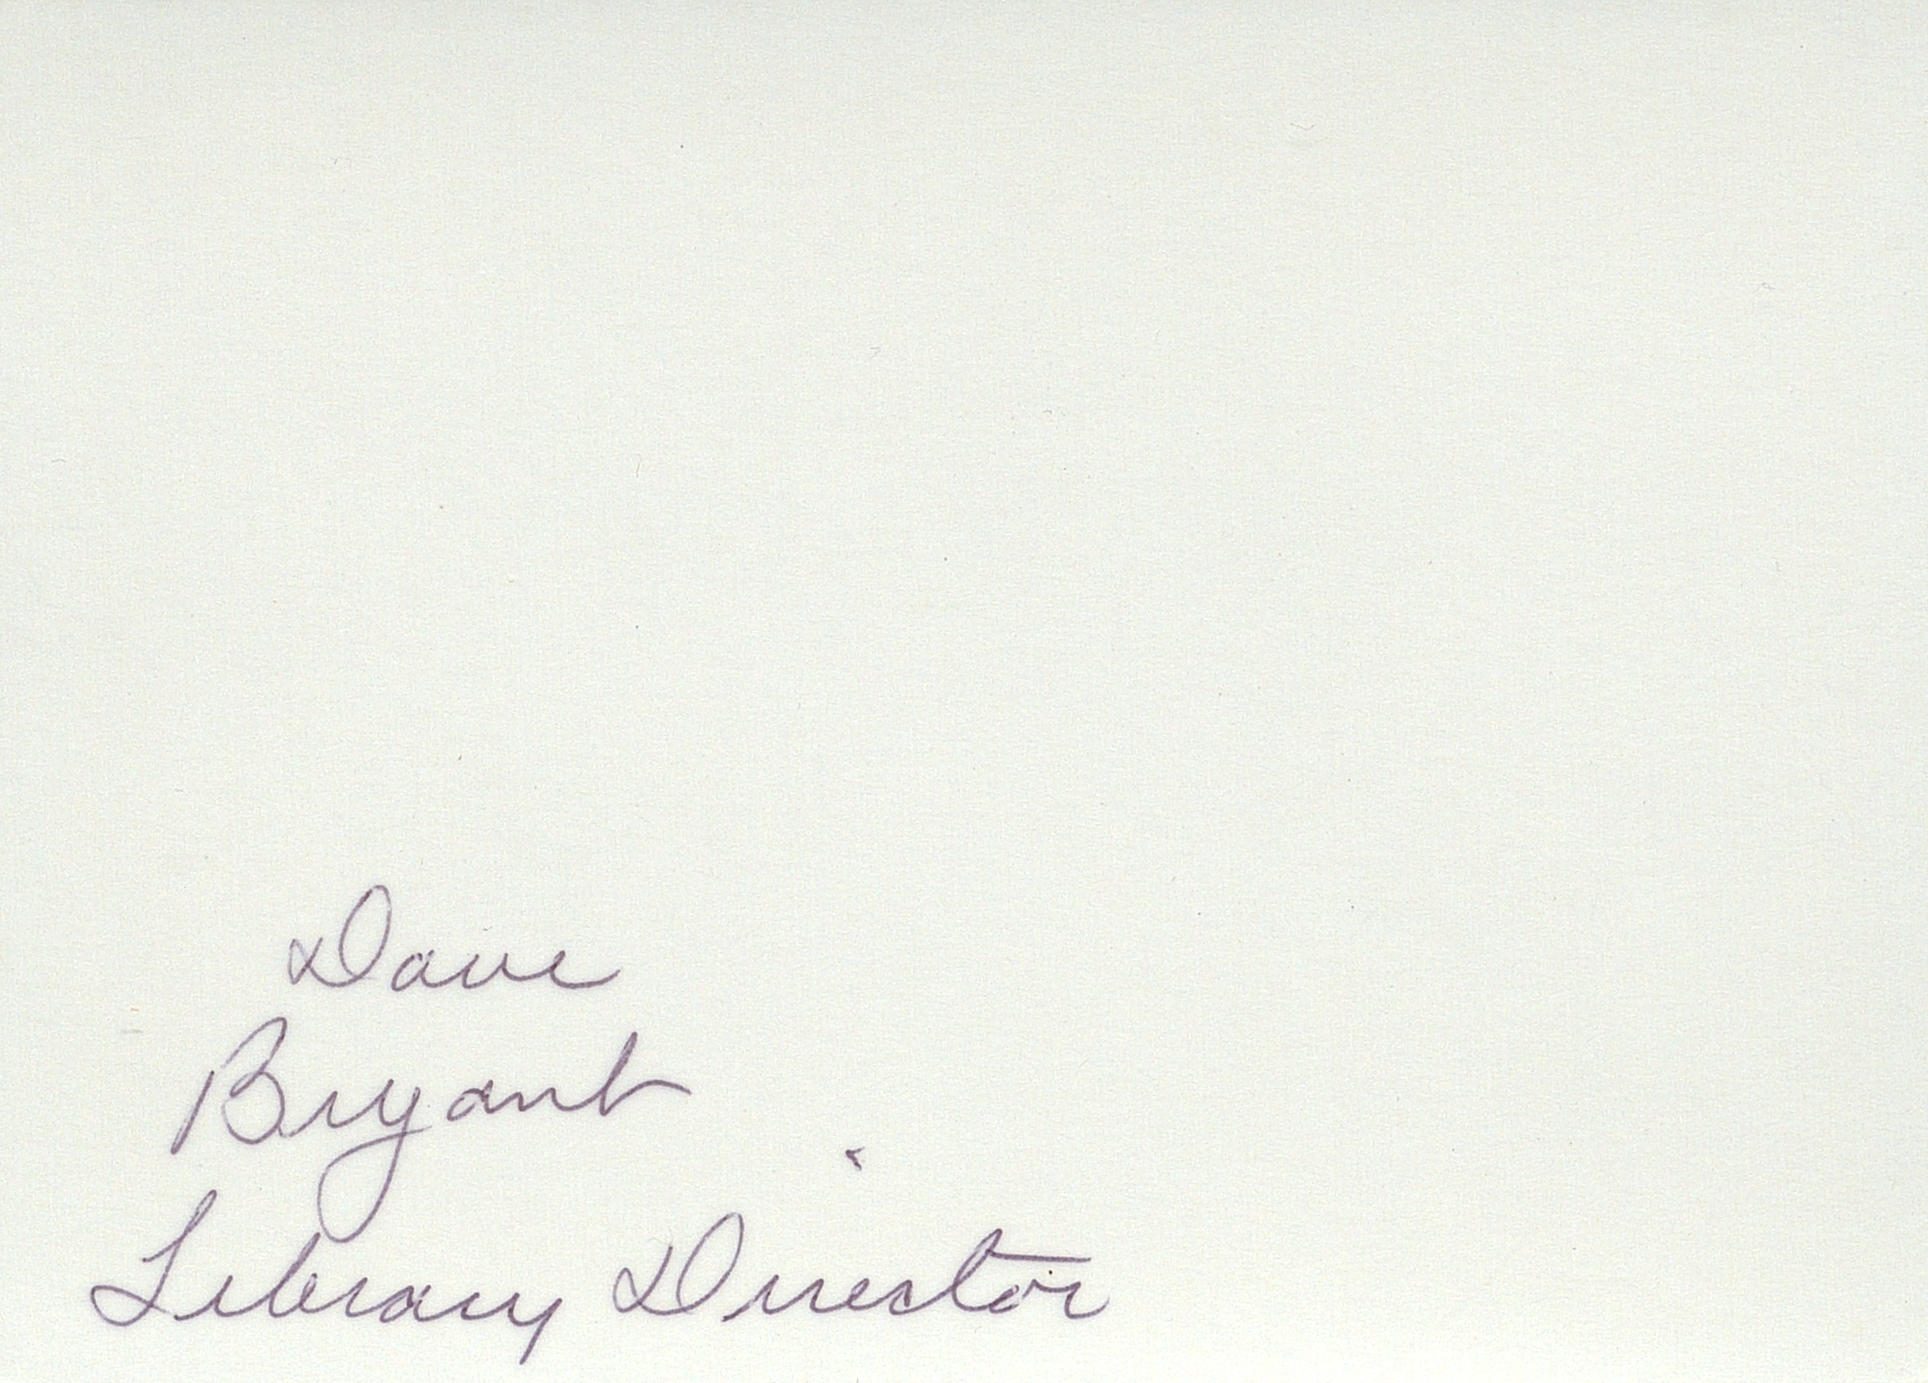 Dave
Bryant
Library Director